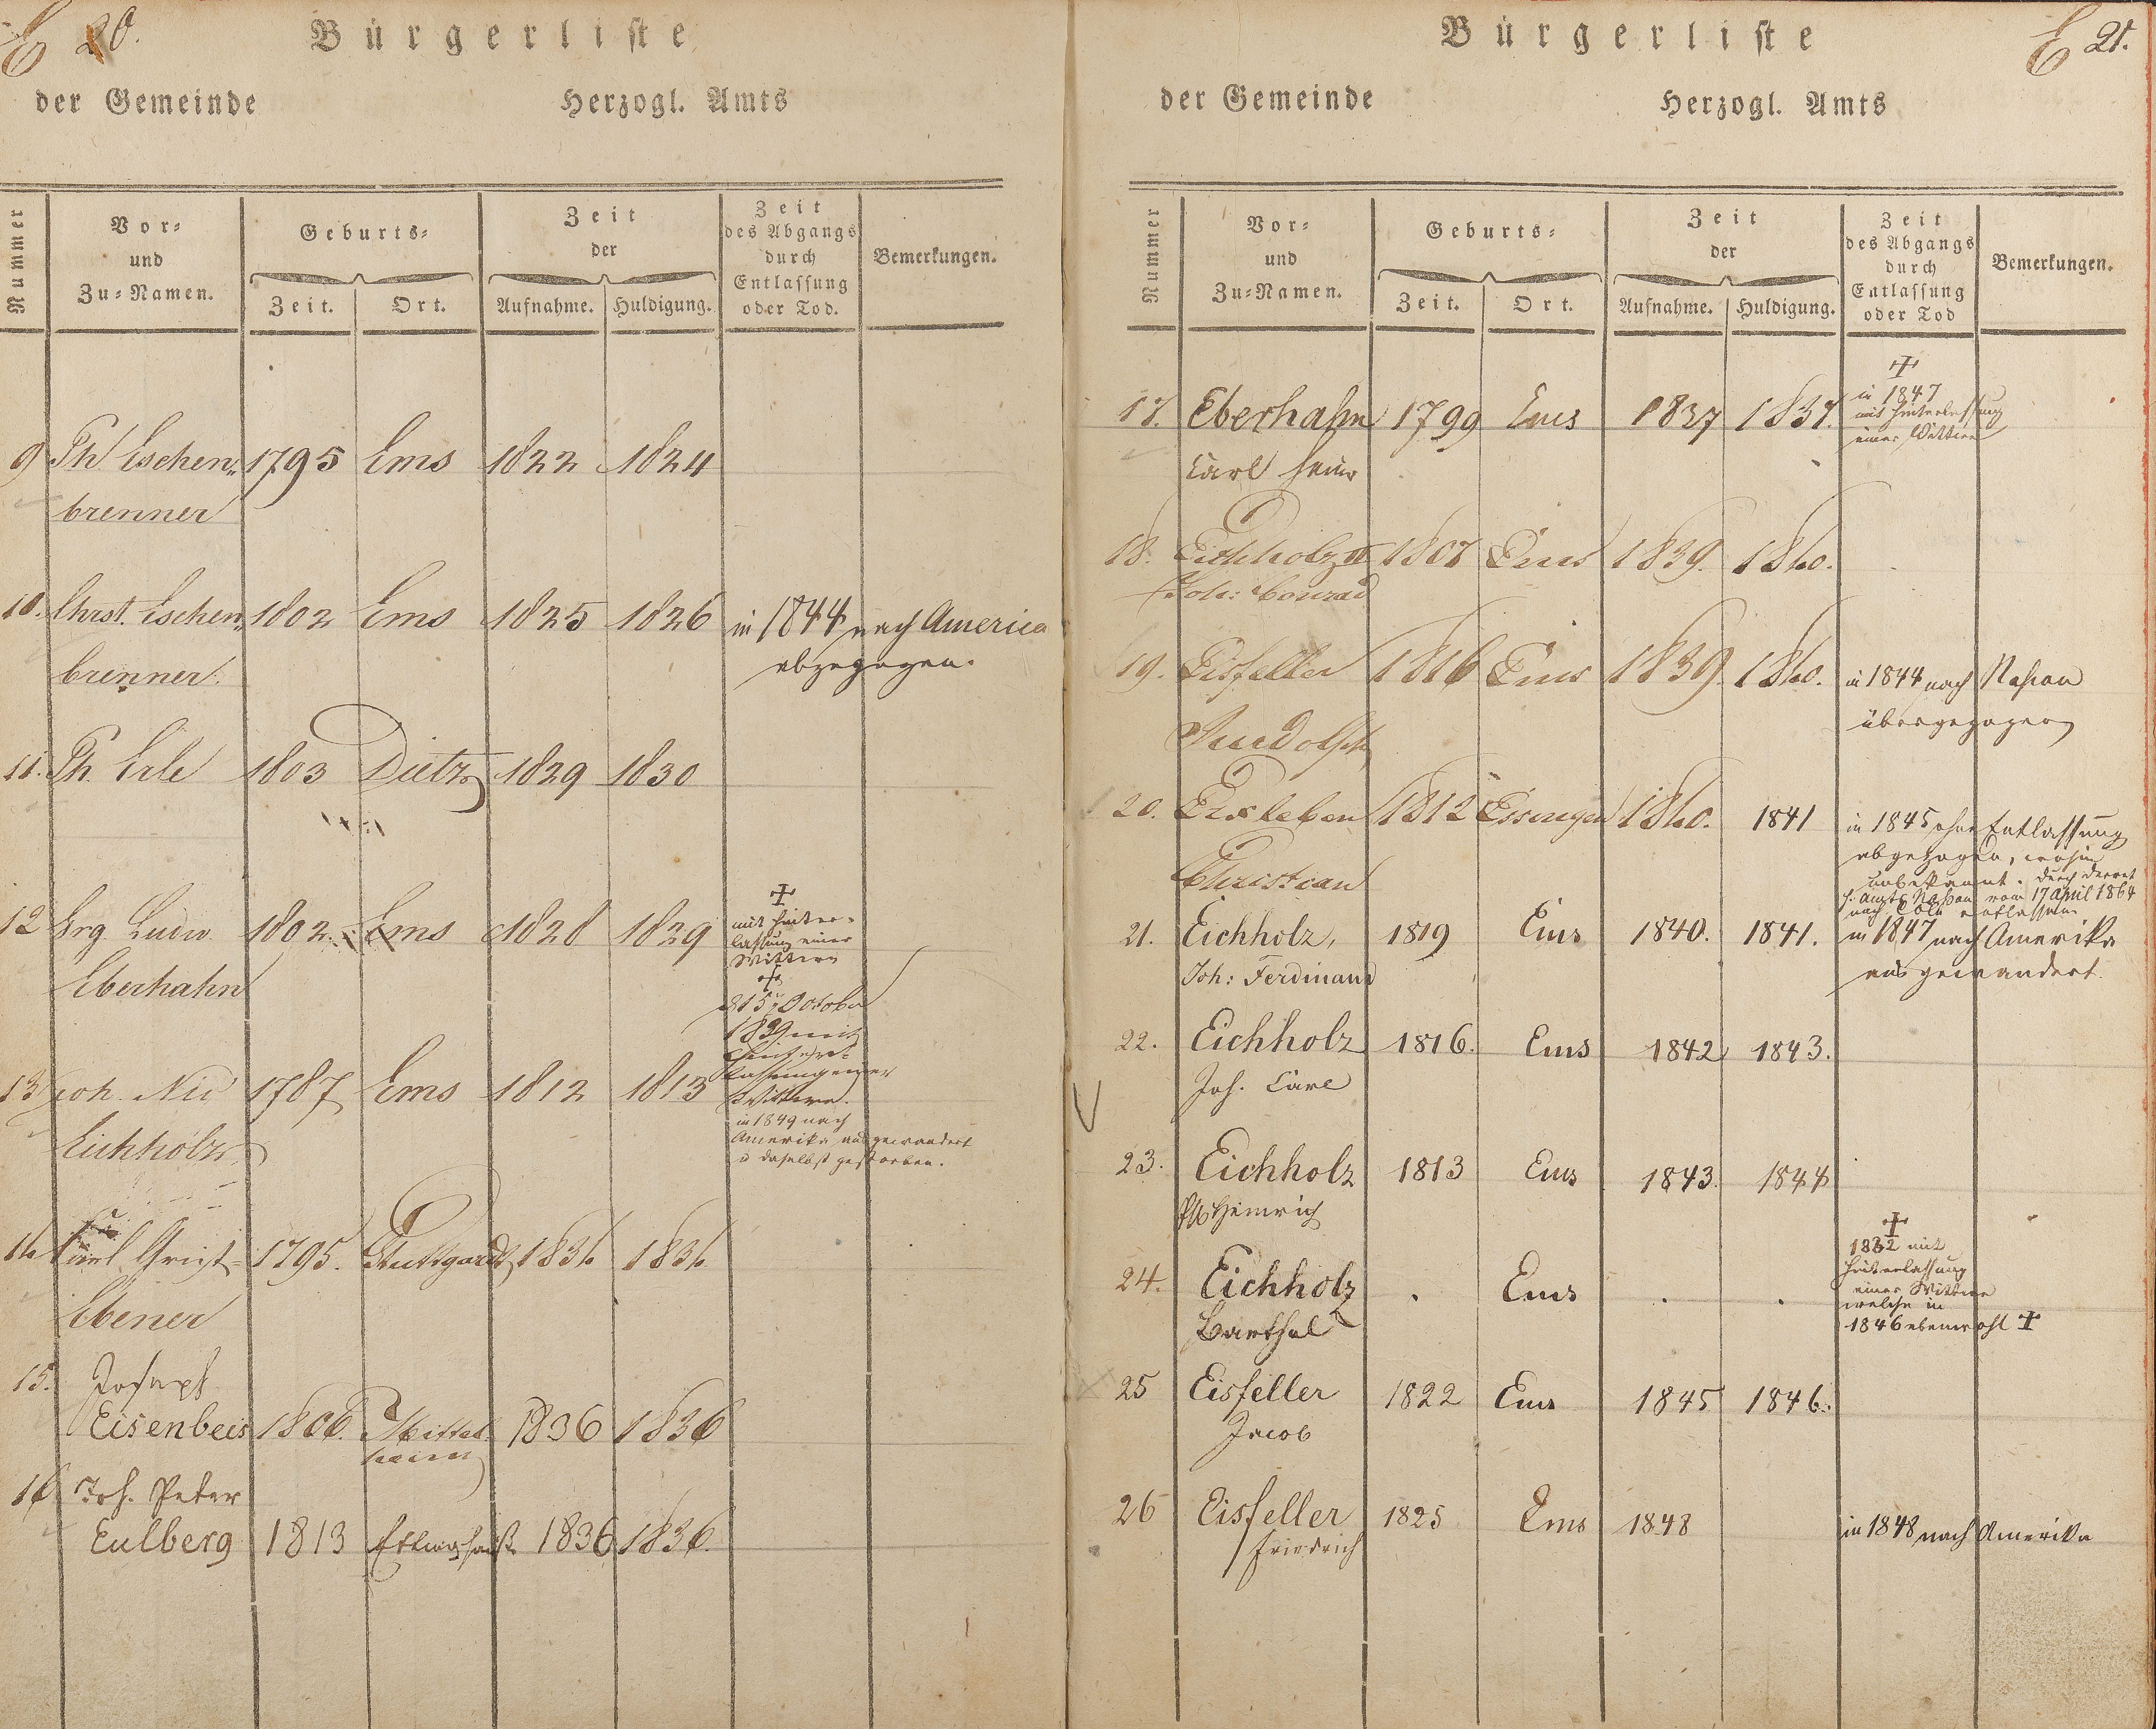 E 20.
Bürgerliste
der Gemeinde Herzogl. Amts
Nummer
Vor- und Zu-Namen.
Geburts-
Zeit. Ort.
Zeit der
Aufnahme. Huldigung.
Zeit des Abgangs durch Entlassung oder Tod.
Bemerkungen.
9 Ph Eschen- 1795 Ems 1822 1824
brenner
10. Christ. Eschen- 1802 Ems 1825 1826 in 1844 nach America
brenner. abgezogen.
11. Ph. Erle 1803 Dietz 1829 1830
12 Grg Ludw. 1802. Ems 1828 1829
Eberhahn
†
mit Hinter-
lassung einer
Wittwe
13 Joh. Nic 1787 Ems 1812 1813
Eichholz
†
d 15 October
1839 mit
Hinter-
lassung einer
Wittwe.
in 1849 nach
Amerika ausgewandert
u daselbst gestorben.
14 Carl 1795. Stuttgardt 1834 1834
Ebener
15. Joseph
Eisenbeis 1806. Mittel- 1836 1836
heim
16 Joh. Peter
Eulberg 1813 1836 1836.
E 21.
Bürgerliste
der Gemeinde Herzogl. Amts
Nummer
Vor- und Zu-Namen.
Geburts-
Zeit. Ort.
Zeit der
Aufnahme. Huldigung.
Zeit des Abgangs durch Entlassung oder Tod
Bemerkungen.
†
in 1847
mit Hinterlassung
einer Wittwe
17. Eberhahn 1799 Ems 1837 1837.
Carl Heinr
18. Eichholz II 1807 Ems 1839. 1840.
Joh: Conrad
19. Eisfeller 1816 Ems 1839. 1840. in 1844 nach Nassau
Rudolph übergezogen
20. Erxleben 1812 Essingen 1840. 1841 in 1845 ohne Entlassung
Christian abgezogen, wohin
unbekannt. durch Decret
H. Amts Nassau vom 17 April 1864
nach Cöln entlassen
21. Eichholz, 1819 Ems 1840. 1841. in 1847 nach Amerika
Joh: Ferdinand ausgewandert.
22. Eichholz 1816. Ems 1842 1843.
Joh. Carl
23. Eichholz 1813 Ems 1843. 1844
Ph Heinrich
24. Eichholz . Ems . .
Barthel
†
1832 mit
Hinterlassung
einer Wittwe
welche in
1846 ebenwohl †
25 Eisfeller 1822 Ems 1845 1846.
Jacob
26 Eisfeller 1825 Ems 1848 in 1848 nach Amerika
Friedrich